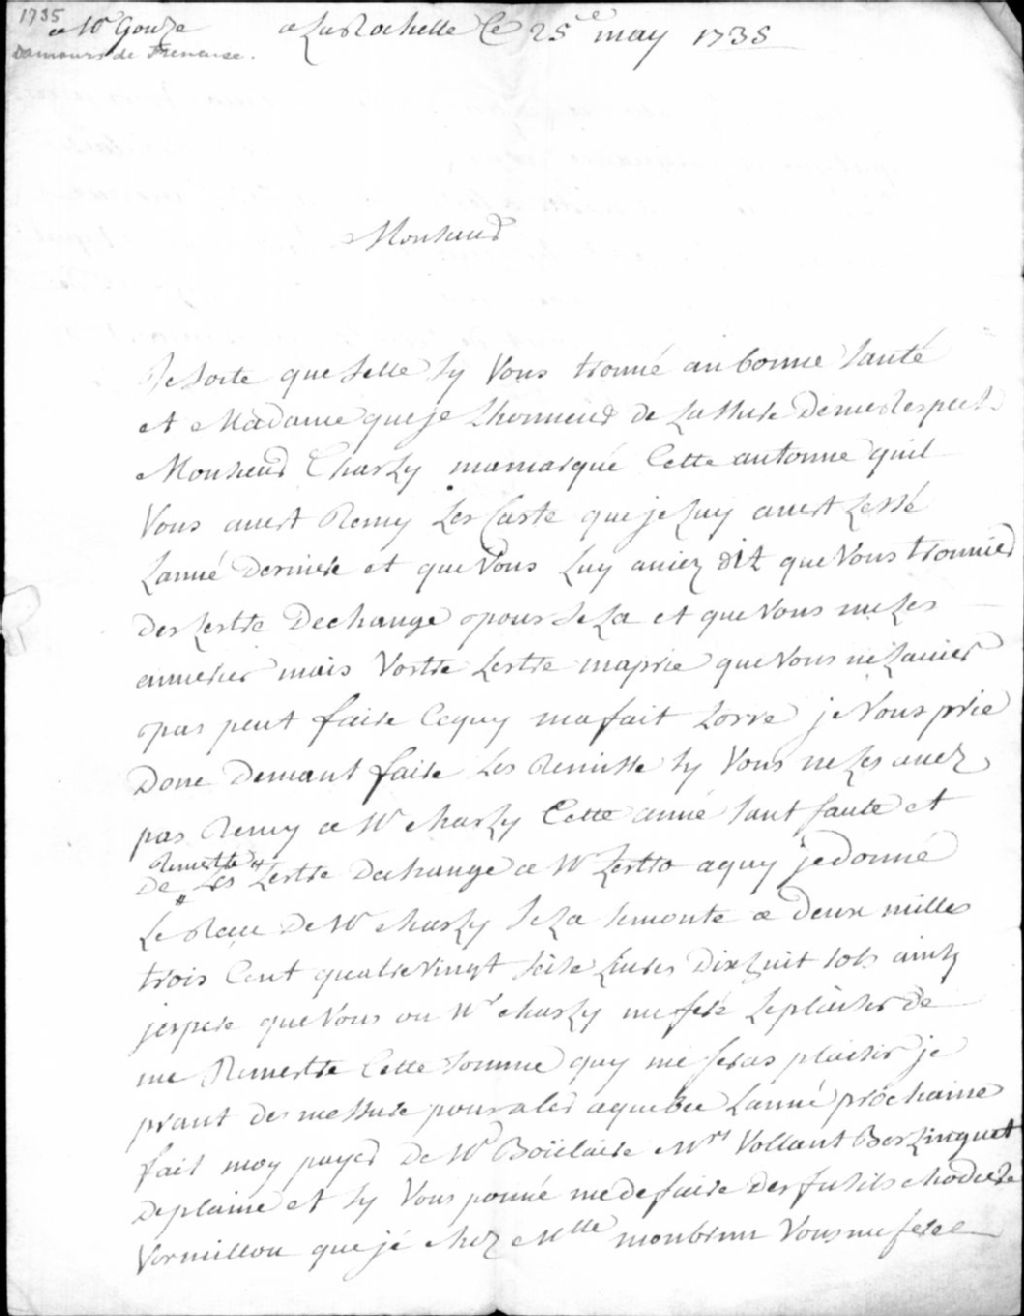 1735
a Mr Gouze
Damours de Freneuse.
a La Rochelle Ce 25e may 1735
Monsieur
Je soite que selle sy Vous trouve an bonne santé
et Madame que je Lhonneur de Lassure De mes respect
Monsieur Charly mamarqué Cette autonne quil
Vous avert Remy Les Caste que je Luy avert Lessé
Lanné Derniere et que Vous Luy aviez dit que Vous trouvier
Des Lestre Dechange pour sela et que Vous me Les
anverier mais Vostre Lestre maprie que Vous ne Lavier
pas peut faire Cequy ma fait torre je Vous prie
Donc Demant faire Les Remisse sy Vous ne Les avez
pas Remy a Mr charly Cette anné sant faute et
Remettre
De Les Lestre Dechange a Mr Lestro aquy je donné
Le Recu De Mr charly sela semonte a Deux milles
trois Cent quatrevingt seise Livres Dixhuit sols ainsy
jespere que Vous ou Mr charly me feré Le plaisir De
me Remestre Cette somme quy me feras plaisir je
prant des messure pour aler aquebec Lanné prochaine
fait moy payer De Mr Boiclaire Mrs Vollant Berlinguet
Deplaine et sy Vous pouvé me defaire Des fusils chodiere
Vermillon que jé chez Mlle monbrun Vous me feré